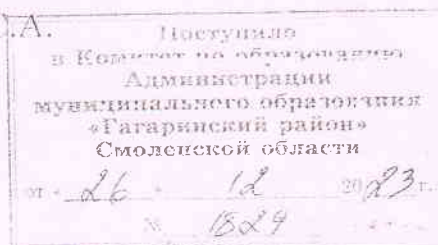 .А.
Поступило
в Комитет по образованию
Администрации
муниципального образования
«Гагаринский район»
Смоленской области
от «26» 12 2023 г.
№ 1829